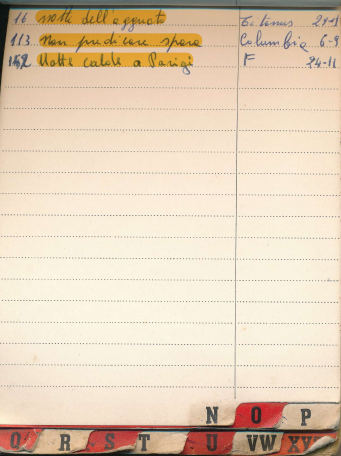 16 notte dell'agguato 24-1
113 Non predicare spara Columbia 6-9
142 Notte calde a Parigi F 24-11
N O P
Q R S T U VW XY